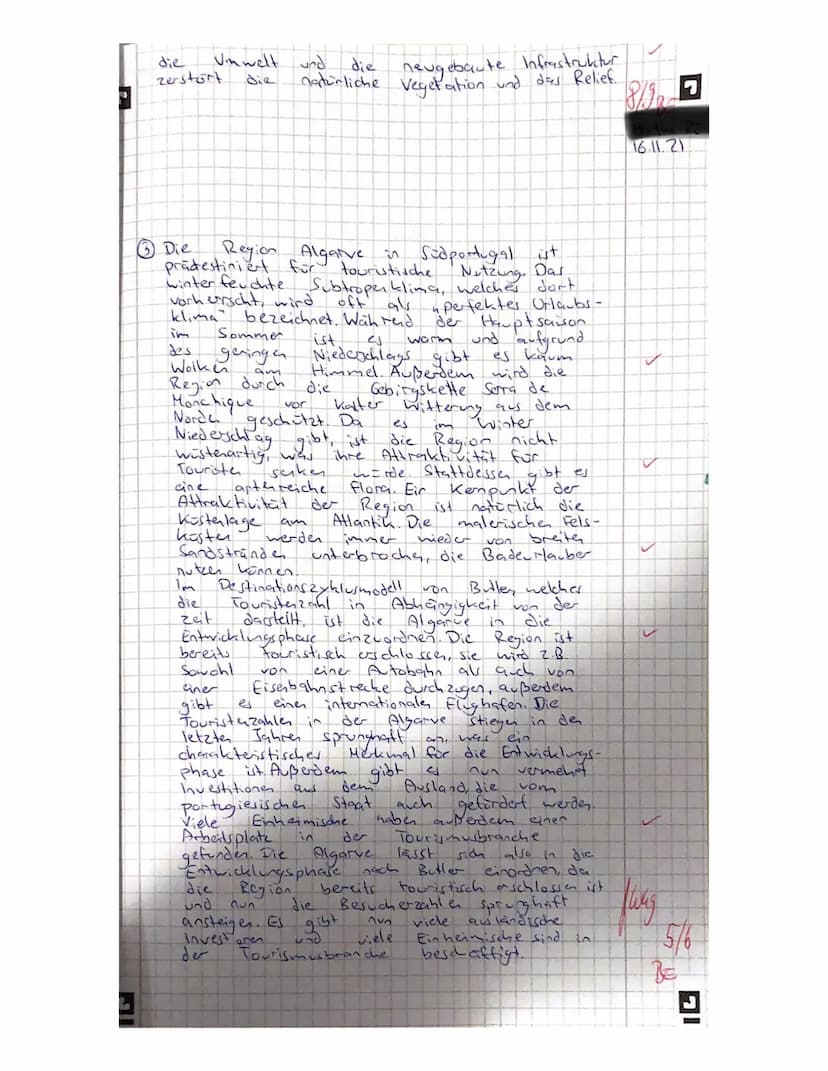 die Umwelt und die neugebaute Infrastruktur
zerstört die natürliche Vegetation und das Relief.
8/9 BE
16.11.21
③ Die Region Algarve in Südportugal ist
prädestiniert für touristische Nutzung. Das
winterfeuchte Subtropenklima, welches dort
vorherrscht, wird oft als „perfektes Urlaubs-
klima" bezeichnet. Während der Hauptsaison
im Sommer ist es warm und aufgrund
des geringen Niederschlags gibt es kaum
Wolken am Himmel. Außerdem wird die
Region durch die Gebirgskette Serra de
Monchique vor kalter Witterung aus dem
Norden geschützt. Da es im Winter
Niederschlag gibt, ist die Region nicht
wüstenartig, was ihre Attraktivität für
Touristen senken würde. Stattdessen gibt es
eine artenreiche Flora. Ein Kernpunkt der
Attraktivität der Region ist natürlich die
Küstenlage am Atlantik. Die malerischen Fels-
küsten werden immer wieder von breiten
Sandstränden unterbrochen, die Badeurlauber
nutzen können.
Im Destinationszyklusmodell von Butler, welches
die Touristenzahl in Abhängigkeit von der
Zeit darstellt, ist die Algarve in die
Entwicklungsphase einzuordnen. Die Region ist
bereits touristisch erschlossen, sie wird z.B.
sowohl von einer Autobahn als auch von
einer Eisenbahnstrecke durchzogen, außerdem
gibt es einen internationalen Flughafen. Die
Touristenzahlen in der Algarve stiegen in den
letzten Jahren sprunghaft an, was ein
charakteristisches Merkmal für die Entwicklungs-
phase ist. Außerdem gibt es nun vermehrt
Investitionen aus dem Ausland, die vom
portugiesischen Staat auch gefördert werden.
Viele Einheimische haben außerdem einen
Arbeitsplatz in der Tourismusbranche
gefunden. Die Algarve lässt sich also in die
Entwicklungsphase nach Butler einordnen, da
die Region bereits touristisch erschlossen ist
und nun die Besucherzahlen sprunghaft
ansteigen. Es gibt nun viele ausländische
Investoren und viele Einheimische sind in
der Tourismusbranche beschäftigt.
5/6
BE